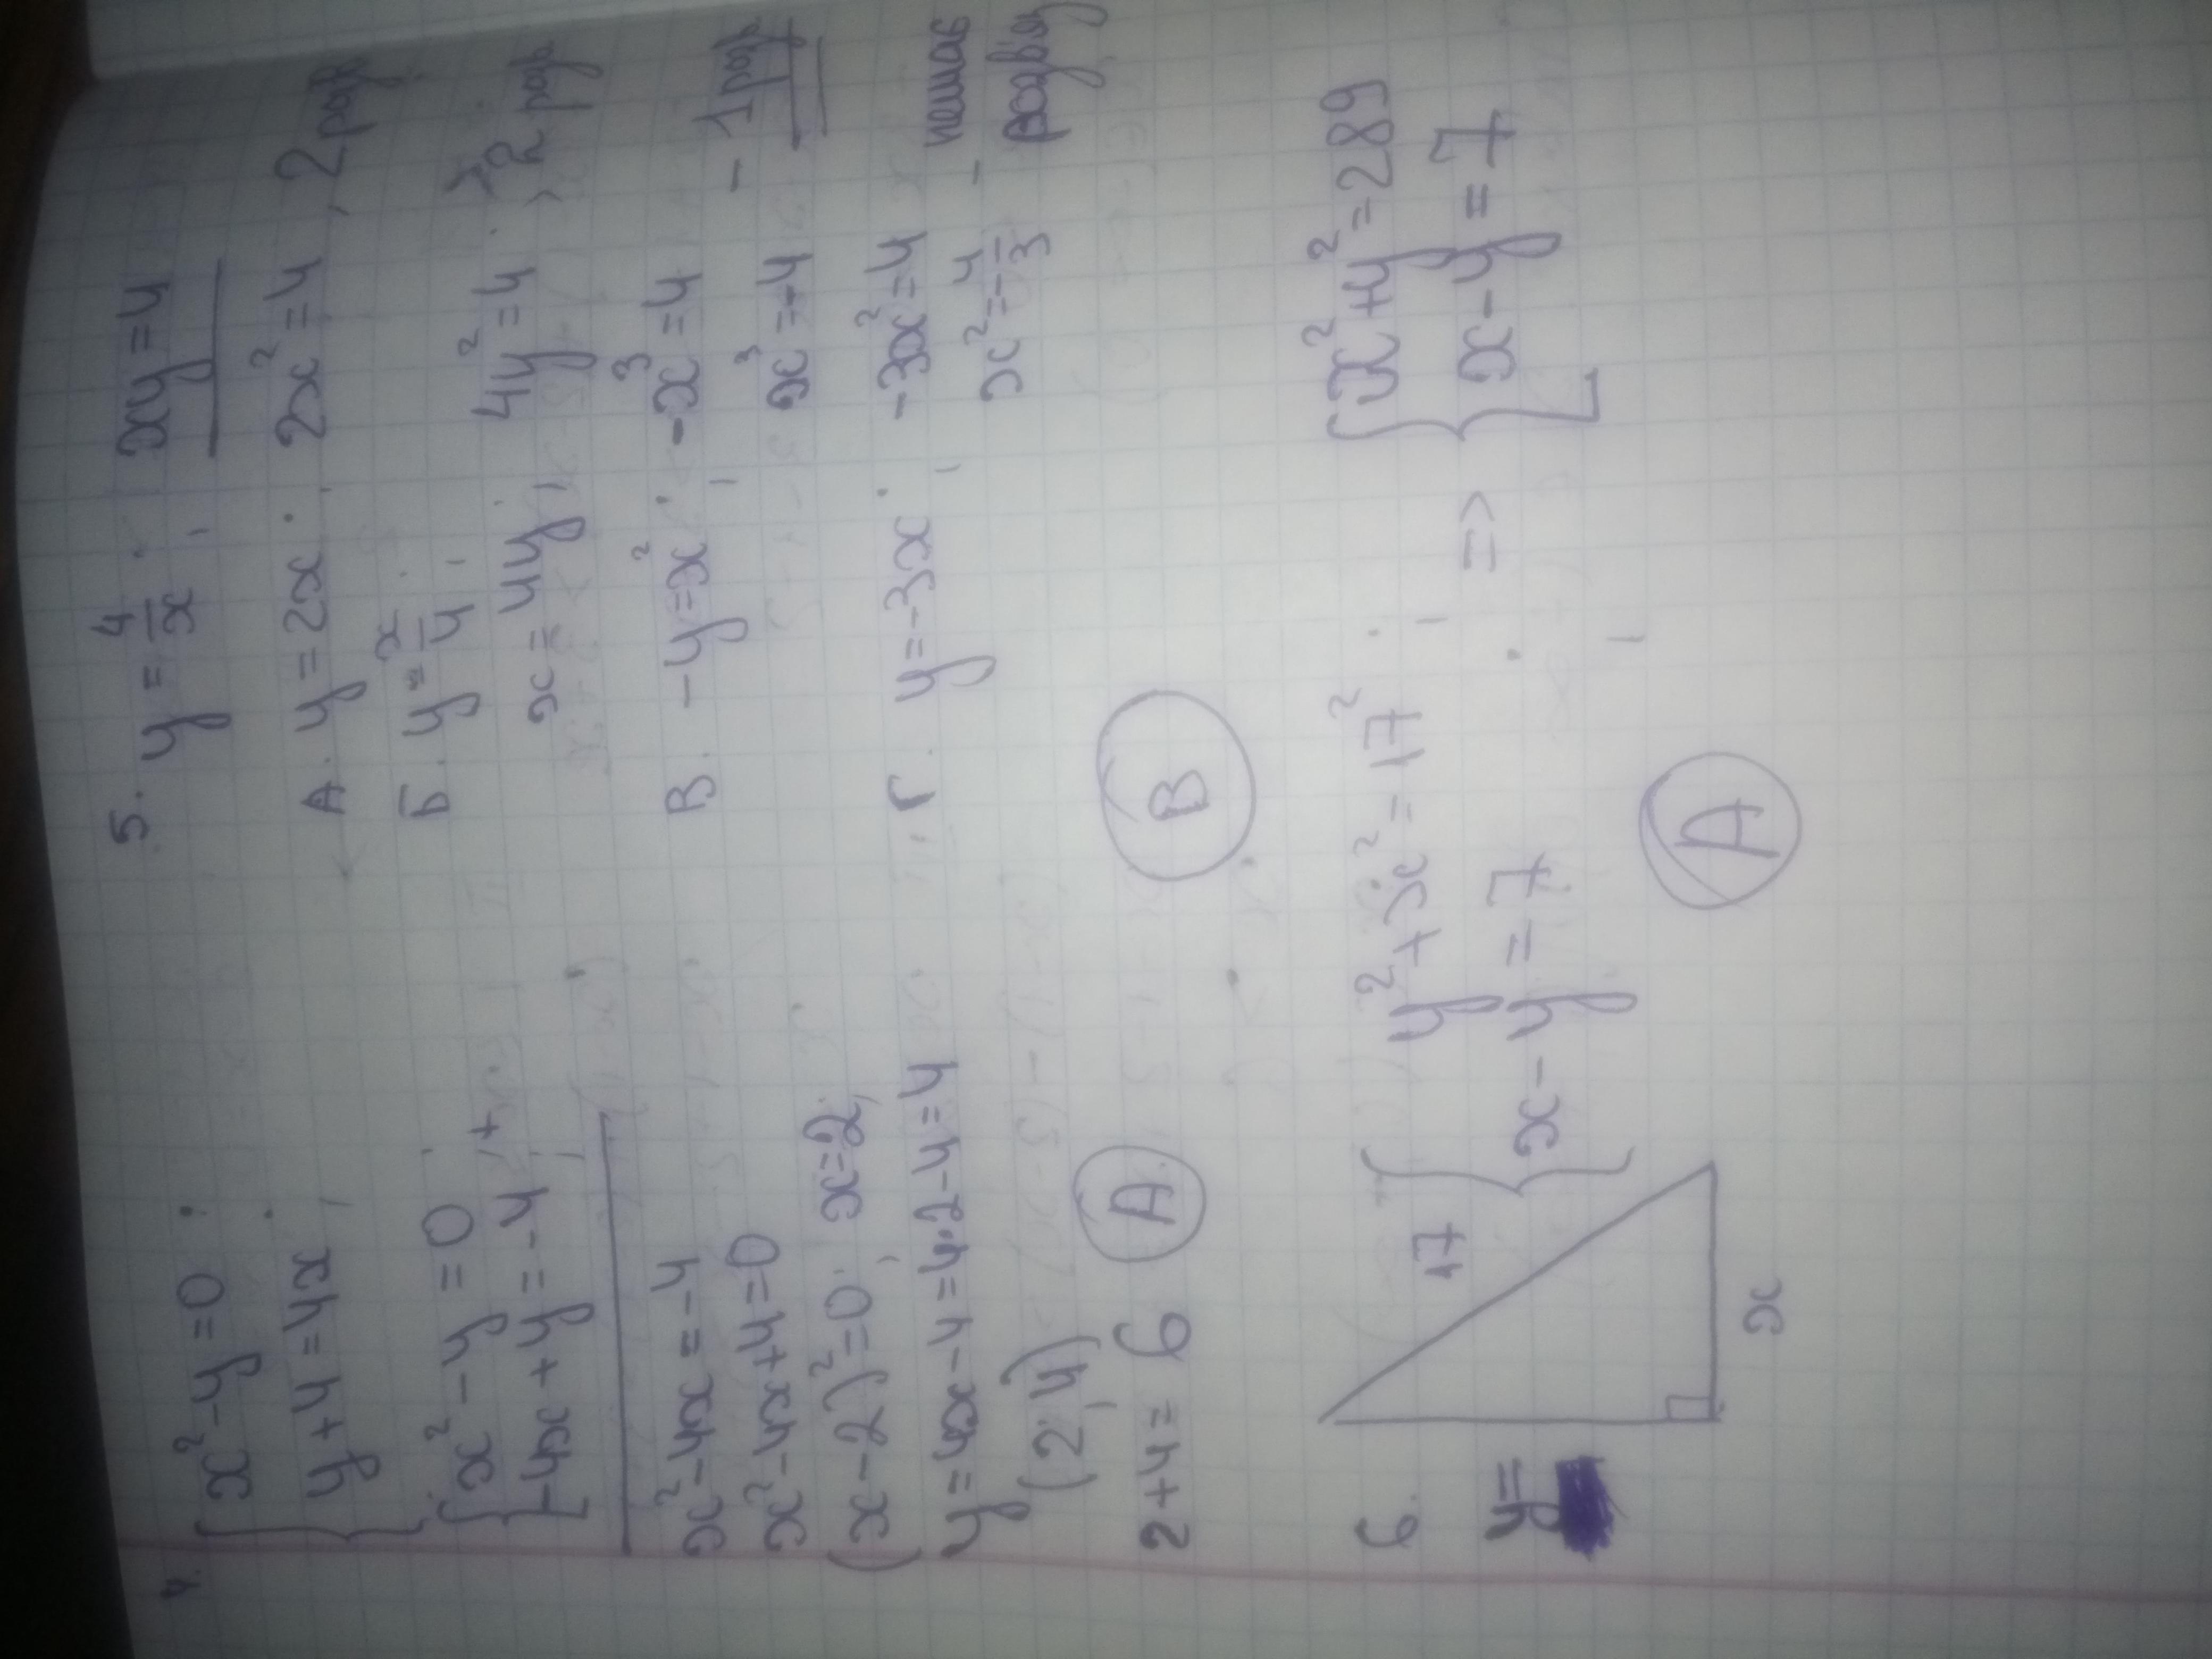 4. { x² - y = 0 ;
y + 4 = 4x ;
{ x² - y = 0 ;
-4x + y = -4 ; +
x² - 4x = -4
x² - 4x + 4 = 0
(x - 2)² = 0 ; x = 2 ;
y = 4x - 4 = 4·2 - 4 = 4
(2; 4)
2 + 4 = 6 А.
5. y = 4/x ; xy = 4
А. y = 2x ; 2x² = 4 , 2 розв
Б. y = x/4 ;
x = 4y ; 4y² = 4 ; 2 розв
В. -y = x² ; -x³ = 4 - 1 розв
x³ = -4
Г. y = -3x ; -3x² = 4 - немає
x² = -4/3 розв'яз
В
6. 17 { y² + x² = 17² ; => { x² + y² = 289
y = x - y = 7 ; x - y = 7
x
А